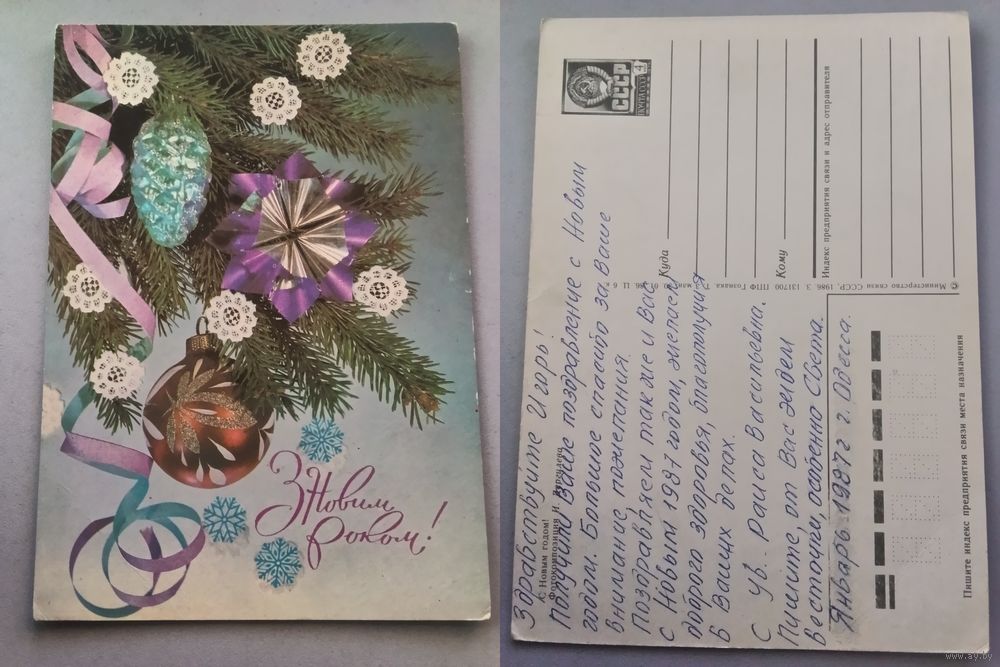 З Новим
роком!
СССР
ПОЧТА 4К
Здравствуйте Игорь!
Получили Ваше поздравление с Новым
годом. Большое спасибо за Ваше
внимание, пожелания.
Поздравляем так же и Вас
с Новым 1987 годом, желаем
доброго здоровья, благополучия
в Ваших делах.
С ув. Раиса Васильевна.
Пишите, от Вас ждем
весточки, особенно Света.
Январь 1987 г. г. Одесса.
С Новым годом!
Фотокомпозиция И.
Куда
Кому
Индекс предприятия связи и адрес отправителя
© Министерство связи СССР, 1986. З. 131700 ППФ Гознака.
Пишите индекс предприятия связи места назначения
www.ay.by